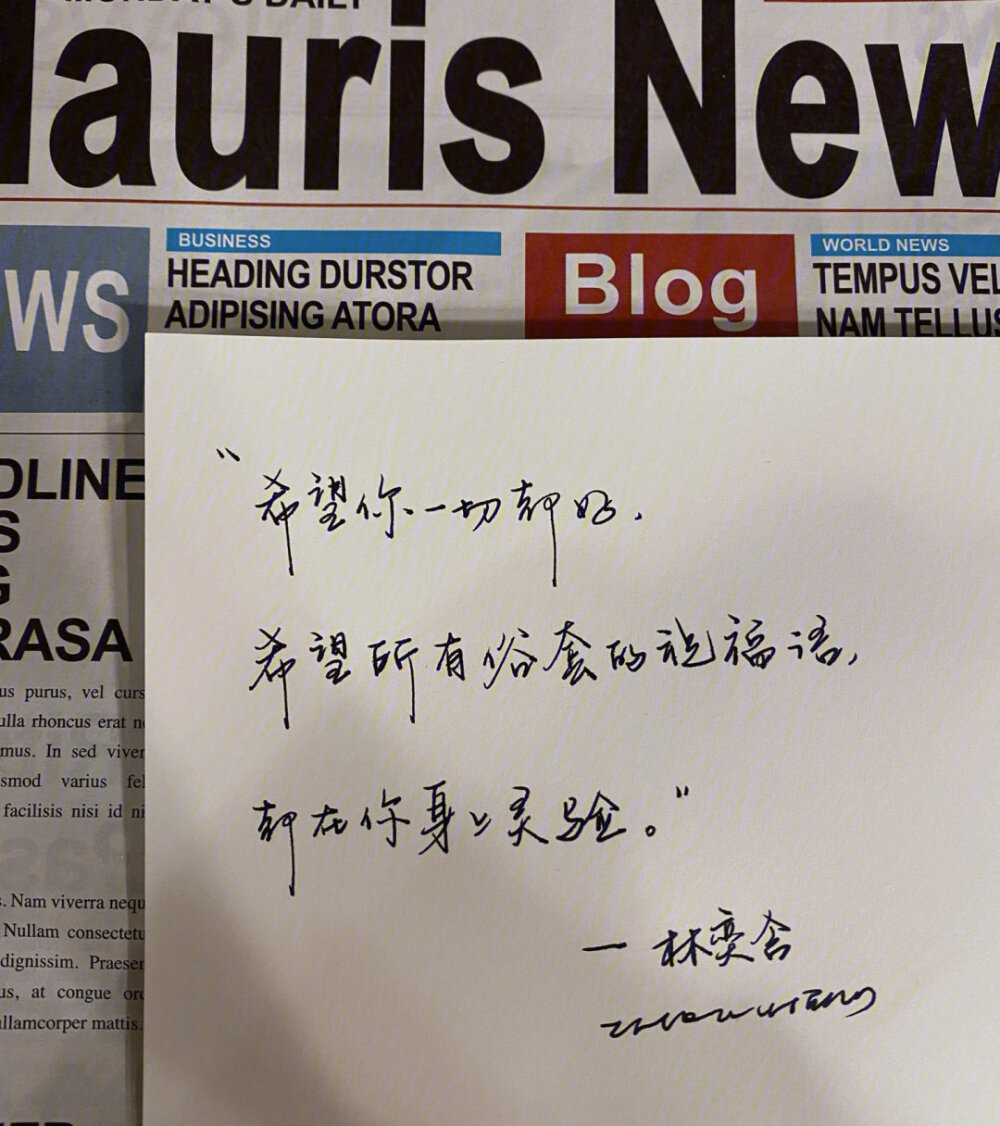 Mauris New
BUSINESS
HEADING DURSTOR
ADIPISING ATORA
Blog
WORLD NEWS
TEMPUS VEL
NAM TELLUS
WS
DLINE
S
G
RASA
us purus, vel curs
ulla rhoncus erat
mus. In sed viver
smod varius fel
facilisis nisi id ni
. Nam viverra nequ
Nullam consectetu
dignissim. Praeser
us, at congue orc
llamcorper mattis.
"希望你一切都好,
希望所有俗套的祝福语,
都在你身上灵验。"
— 林奕含